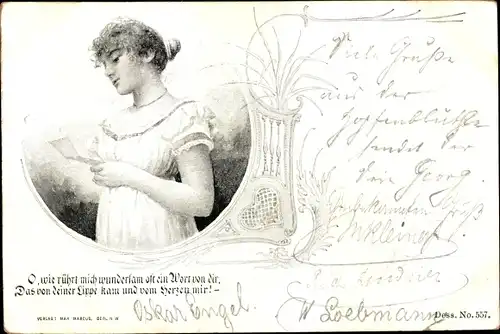 Viele Grüße
aus der
Hopfenblüthe
sendet der
Georg
Gruß
O, wie rührt mich wundersam oft ein Wort von dir,
Das von deiner Lippe kam und vom Herzen mir! –
VERLAGT MAX MARCUS, BERLIN W
Oskar Engel.
W Loebmann
Dess. No. 557.